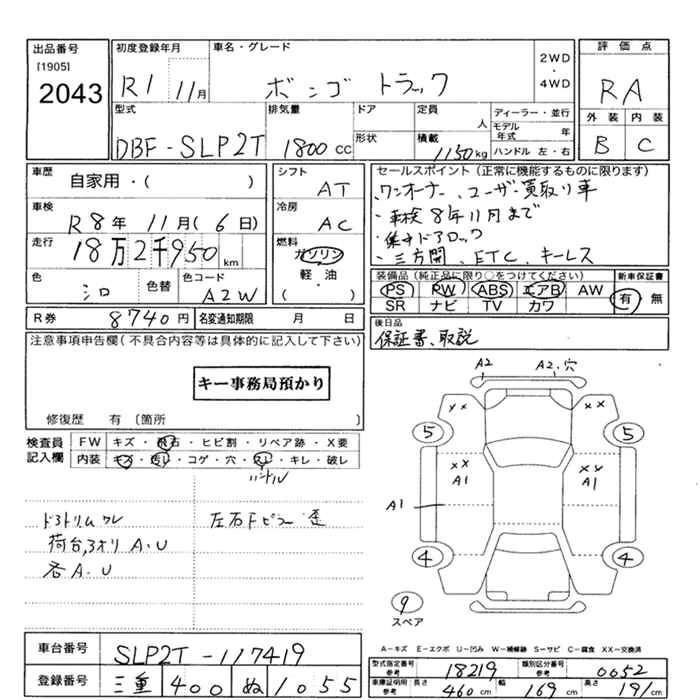 出品番号
[1905]
2043
初度登録年月
R1 11月
車名・グレード
ボンゴ トラック
2WD
・
4WD
評価点
RA
外装 内装
B C
型式
DBF-SLP2T
排気量
1800cc
ドア
形状
定員 人
積載
1150kg
ディーラー・並行
モデル年式 年
ハンドル 左・右
車歴
自家用・( )
車検
R8年 11月(6日)
走行
18万2千950km
色
シロ
色替
色コード
A2W
シフト
AT
冷房
AC
燃料
ガソリン
軽・油
( )
セールスポイント(正常に機能するものに限ります)
・ワンオーナー、ユーザー買取り車
・車検8年11月まで
・集中ドアロック
・三方開、ETC、キーレス
装備品(純正品に限り○をつけてください)
PS PW ABS エアB AW
SR ナビ TV カワ
新車保証書
有・無
R券 8740円
名変通知期限 月 日
後日品
保証書、取説
注意事項申告欄(不具合内容等は具体的に記入して下さい)
キー事務局預かり
修復歴 有 〔箇所
検査員記入欄
FW キズ・飛石・ヒビ割・リペア跡・X要
内装 キズ・汚レ・コゲ・穴・スレ・キレ・破レ
ハンドル
ドアトリムワレ
荷台,3オリ A.U
各A.U
左右Fピラー 歪
A2 A2.穴
XX XX
5 5
XX XX
A1 A1
A1
4 4
9
スペア
A-キズ E-エクボ U-凹み W-補修跡 S-サビ C-腐食 XX-交換済
車台番号
SLP2T-117419
登録番号
三重 400 ぬ 1055
型式指定番号 参考 18219
類別区分番号 参考 0652
車庫証明用 参考 長さ 460cm 幅 169cm 高さ 191cm